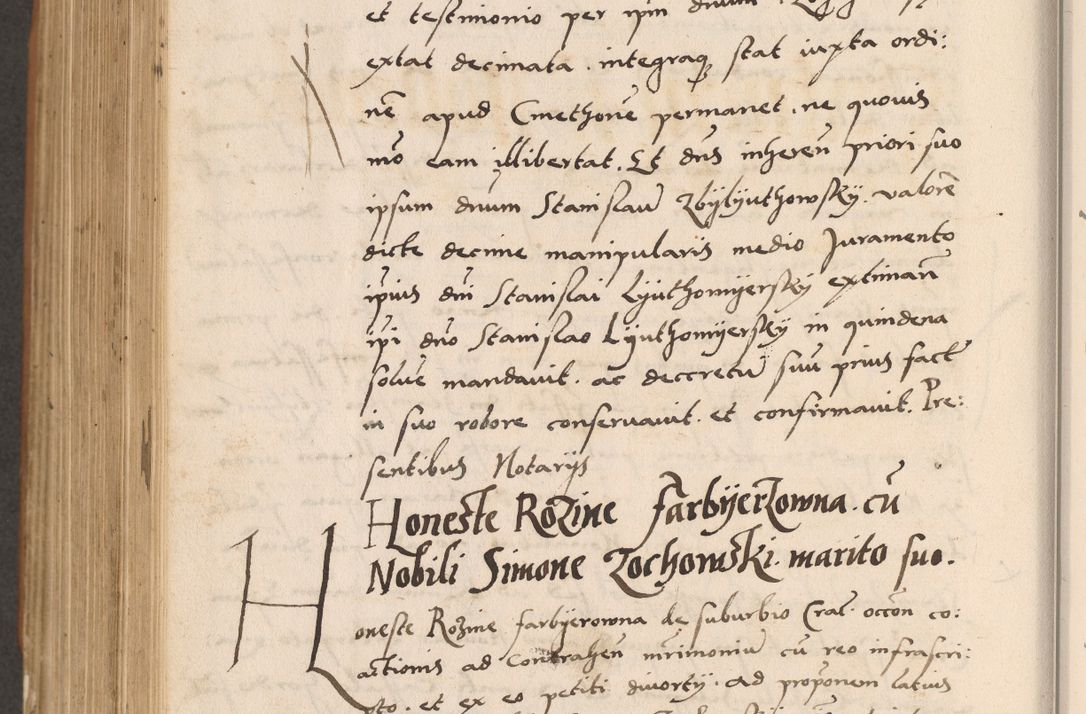 et testimonio per ipm dnum
extat decimata . integraq stat iuxta ordi:
nē apud Cmethonē permanet . ne quouis
mō eam illibertat . Et dns inheren̄ priori suo
ipsum dnum Stanislaū Zbÿlÿuthowskÿ . valorē
dicte decime manipularis medio Juramento
ipius dni Stanislai Lÿuthomÿerskÿ extiman̄
ipi dno Stanislao Lÿuthomÿerskÿ in quindena
soluē mandauit . ac decretū suū prius fact
in suo robore conseruauit . et confirmauit . Pre:
sentibus Notarÿs
Honeste Rozine farbÿerzowna . cū
Nobili Simone Zochowski . marito suo .
Honeste Rozine farbÿerowna de suburbio Crac . occōn co:
actionis ad Contrahen̄ mrimoniū cū reo infrascri:
pto . et ex eo petiti diuortÿ . ad proponem latius